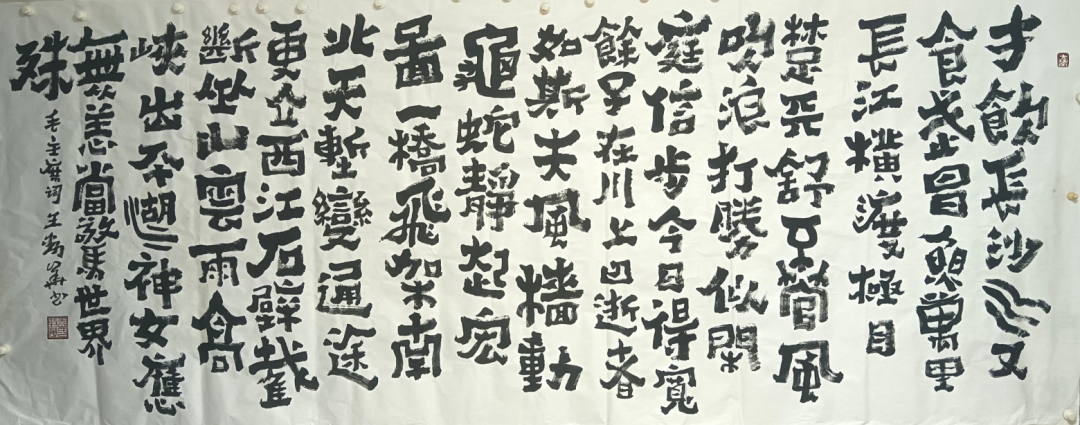 才飲長沙水又
食武昌魚萬里
長江橫渡極目
楚天舒不管風
吹浪打勝似閑
庭信步今日得寬
餘子在川上曰逝者
如斯夫風檣動
龜蛇靜起宏
圖一橋飛架南
北天塹變通途
更立西江石壁截
斷巫山雲雨高
峽出平湖神女應
無恙當驚世界
殊
毛主席詞